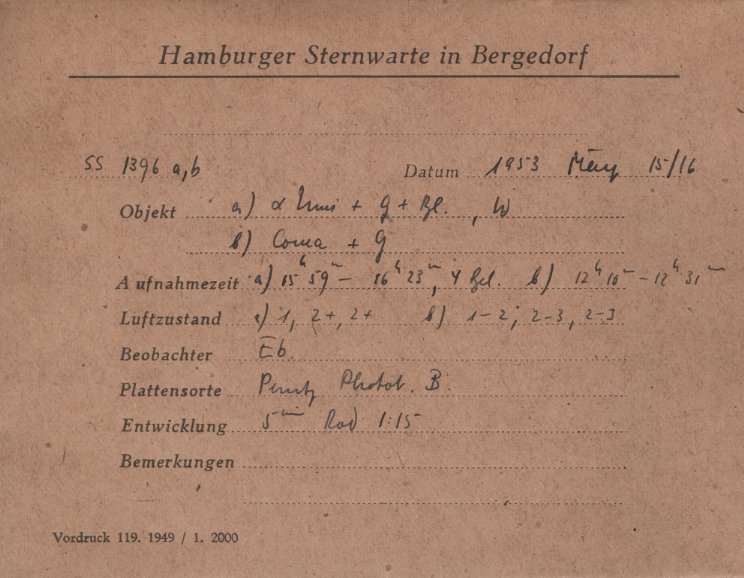 Hamburger Sternwarte in Bergedorf
SS 1396 a,b Datum 1953 März 15/16
Objekt a) α Umi + G + Bl. , W
b) Coma + G
Aufnahmezeit a) 15ʰ 59ᵐ – 16ʰ 23ᵐ, 4 Bel. b) 12ʰ 10ᵐ – 12ʰ 31ᵐ
Luftzustand a) 1, 2+, 2+ b) 1-2, 2-3, 2-3
Beobachter Eb.
Plattensorte Perutz Photot. B.
Entwicklung 5ᵐⁱⁿ Rod 1:15
Bemerkungen
Vordruck 119. 1949 / 1. 2000